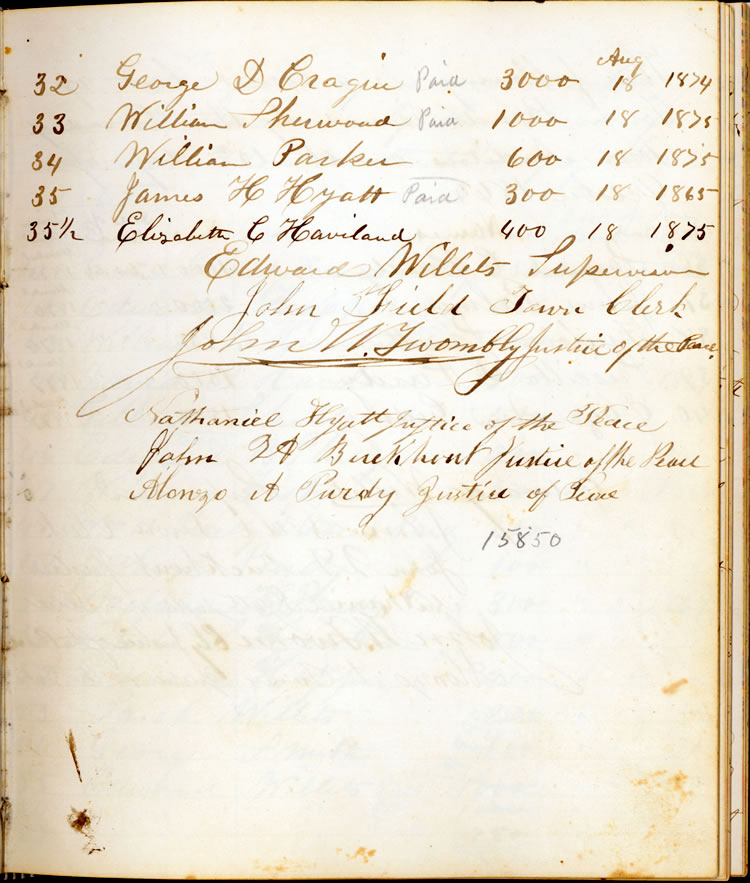 Aug
32 George D Cragin Paid 3000 18 1874
33 William Sherwood Paid 1000 18 1875
34 William Parker 600 18 1875
35 James H Hyatt Paid 300 18 1865
35 1/2 Elizabeth C Haviland 400 18 1875
Edward Willets Supervisor
John Field Town Clerk
John W. Twombly Justice of the Peace
Nathaniel Hyatt Justice of the Peace
John Buckhout Justice of the Peace
Alonzo A Purdy Justice of Peace
15850